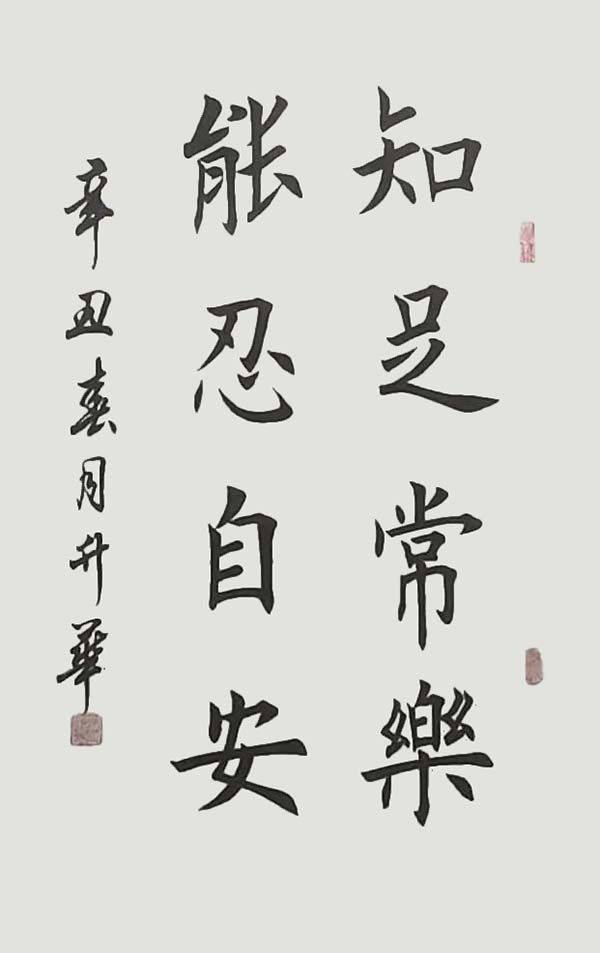 知足常樂
能忍自安
辛丑春月升華